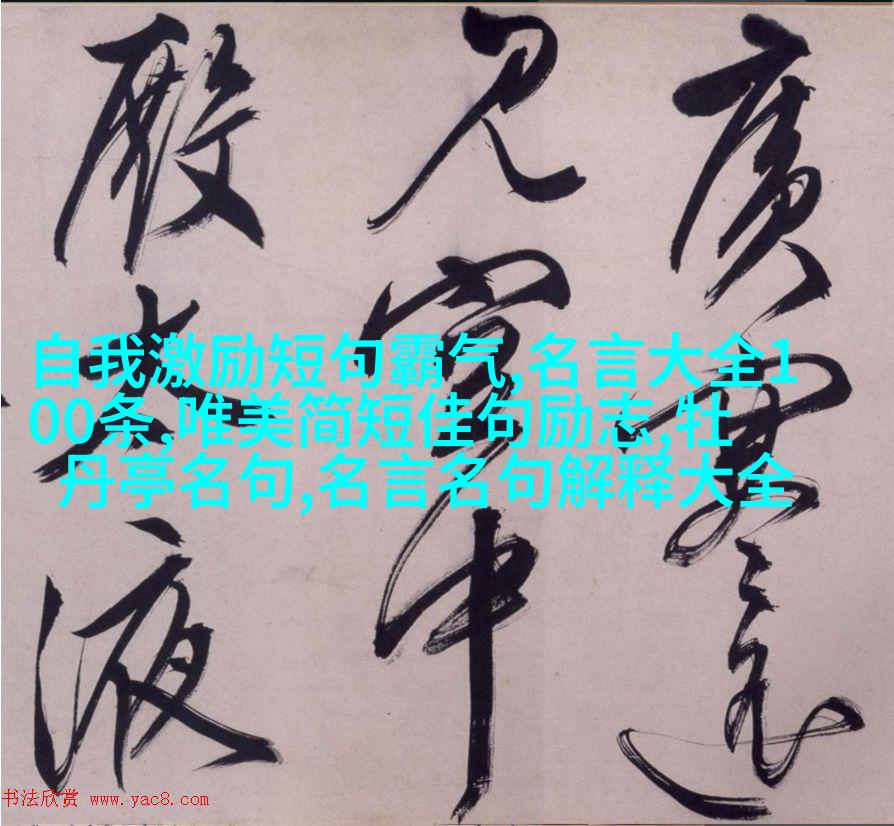 廣
見 中
殿太液
自我激励短句霸气,名言大全1
00条,唯美简短佳句励志,牡
丹亭名句,名言名句解释大全
书法欣赏 www.yac8.com